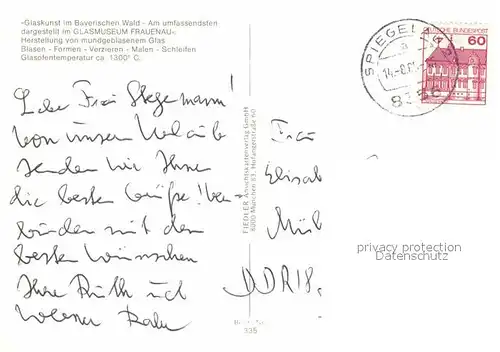 »Glaskunst im Bayerischen Wald - Am umfassendsten
dargestellt im GLASMUSEUM FRAUENAU«.
Herstellung von mundgeblasenem Glas
Blasen - Formen - Verzieren - Malen - Schleifen
Glasofentemperatur ca. 1300° C.
Liebe Frau Stegemann!
Von unserem Urlaub
senden wir Ihnen
die besten Grüße! Ver-
bunden mit den
besten Wünschen
Ihre Ruth und
Werner
FIEDLER Ansichtskartenverlag GmbH
8000 München 83, Hofangerstraße 60
Best.-Nr.
335
SPIEGELAU
14.-8.
DEUTSCHE BUNDESPOST
60
Frau
Elisab
Mühl
DDR 18
privacy protection
Datenschutz